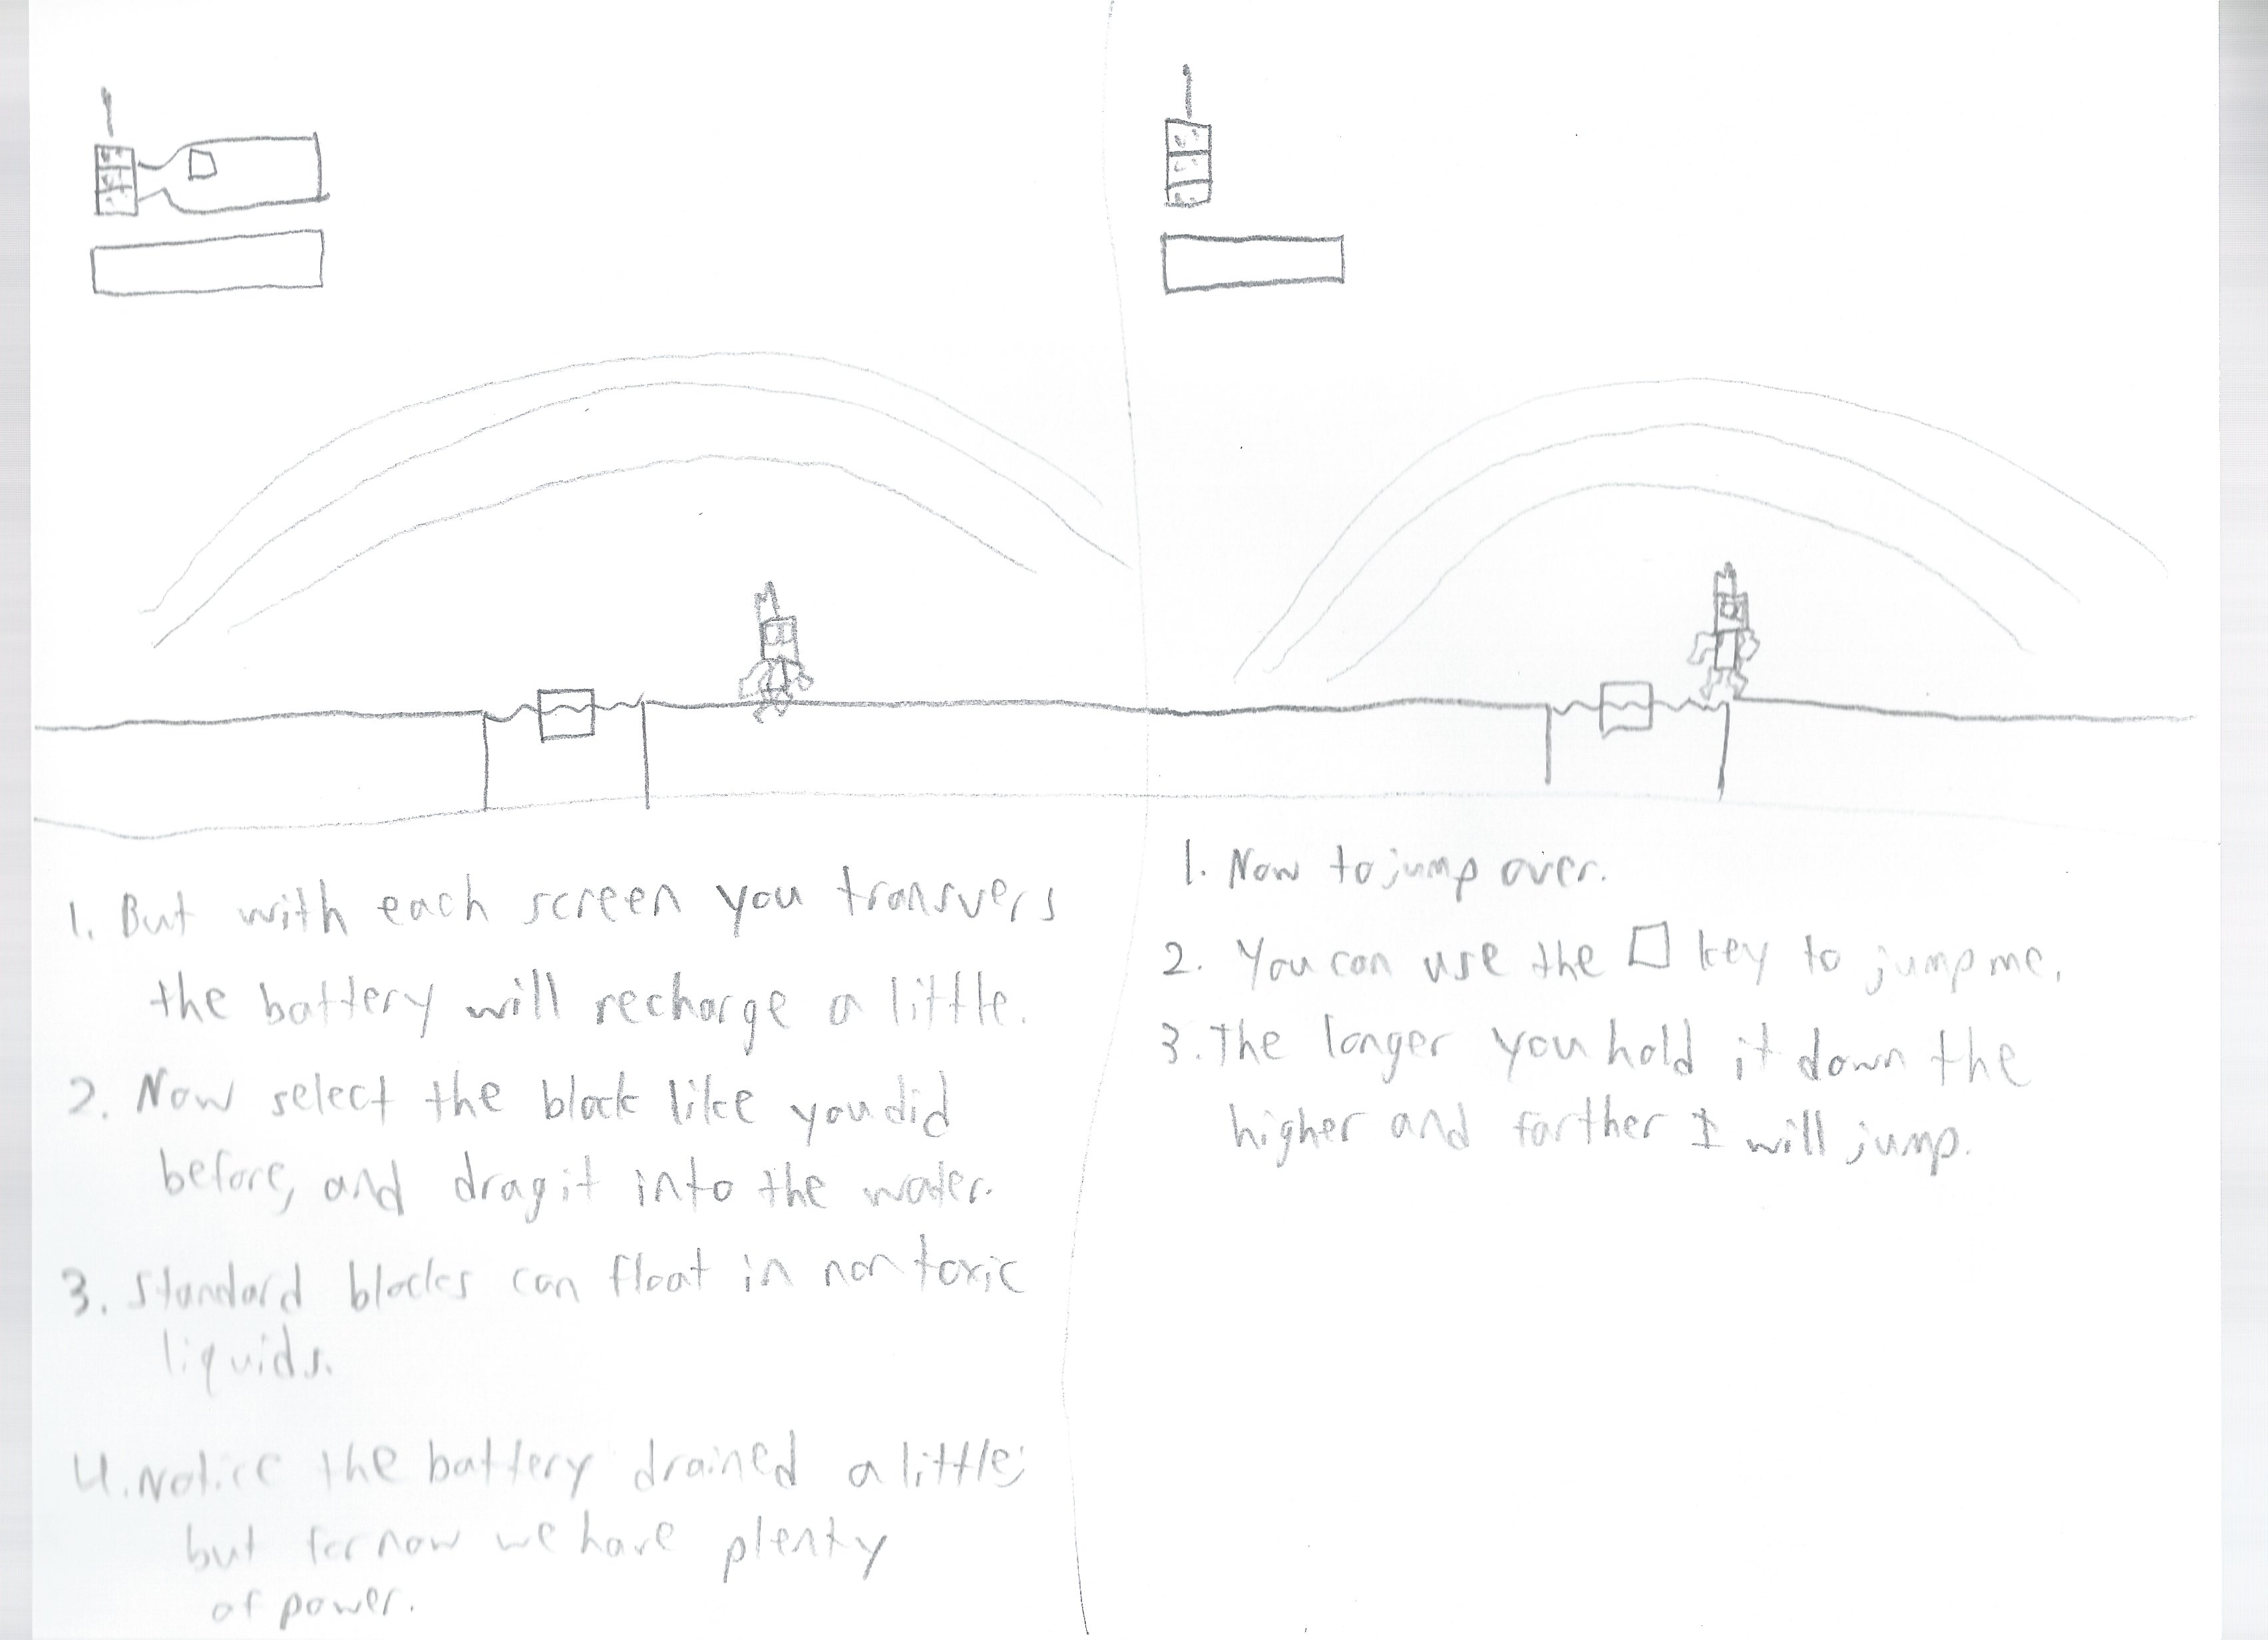 1. But with each screen you transvers
the battery will recharge a little.
2. Now select the block like you did
before, and drag it into the water.
3. Standard blocks can float in non toxic
liquids.
4. Notice the battery drained a little;
but for now we have plenty
of power.
1. Now to jump over.
2. You can use the □ key to jump me.
3. The longer you hold it down the
higher and farther I will jump.